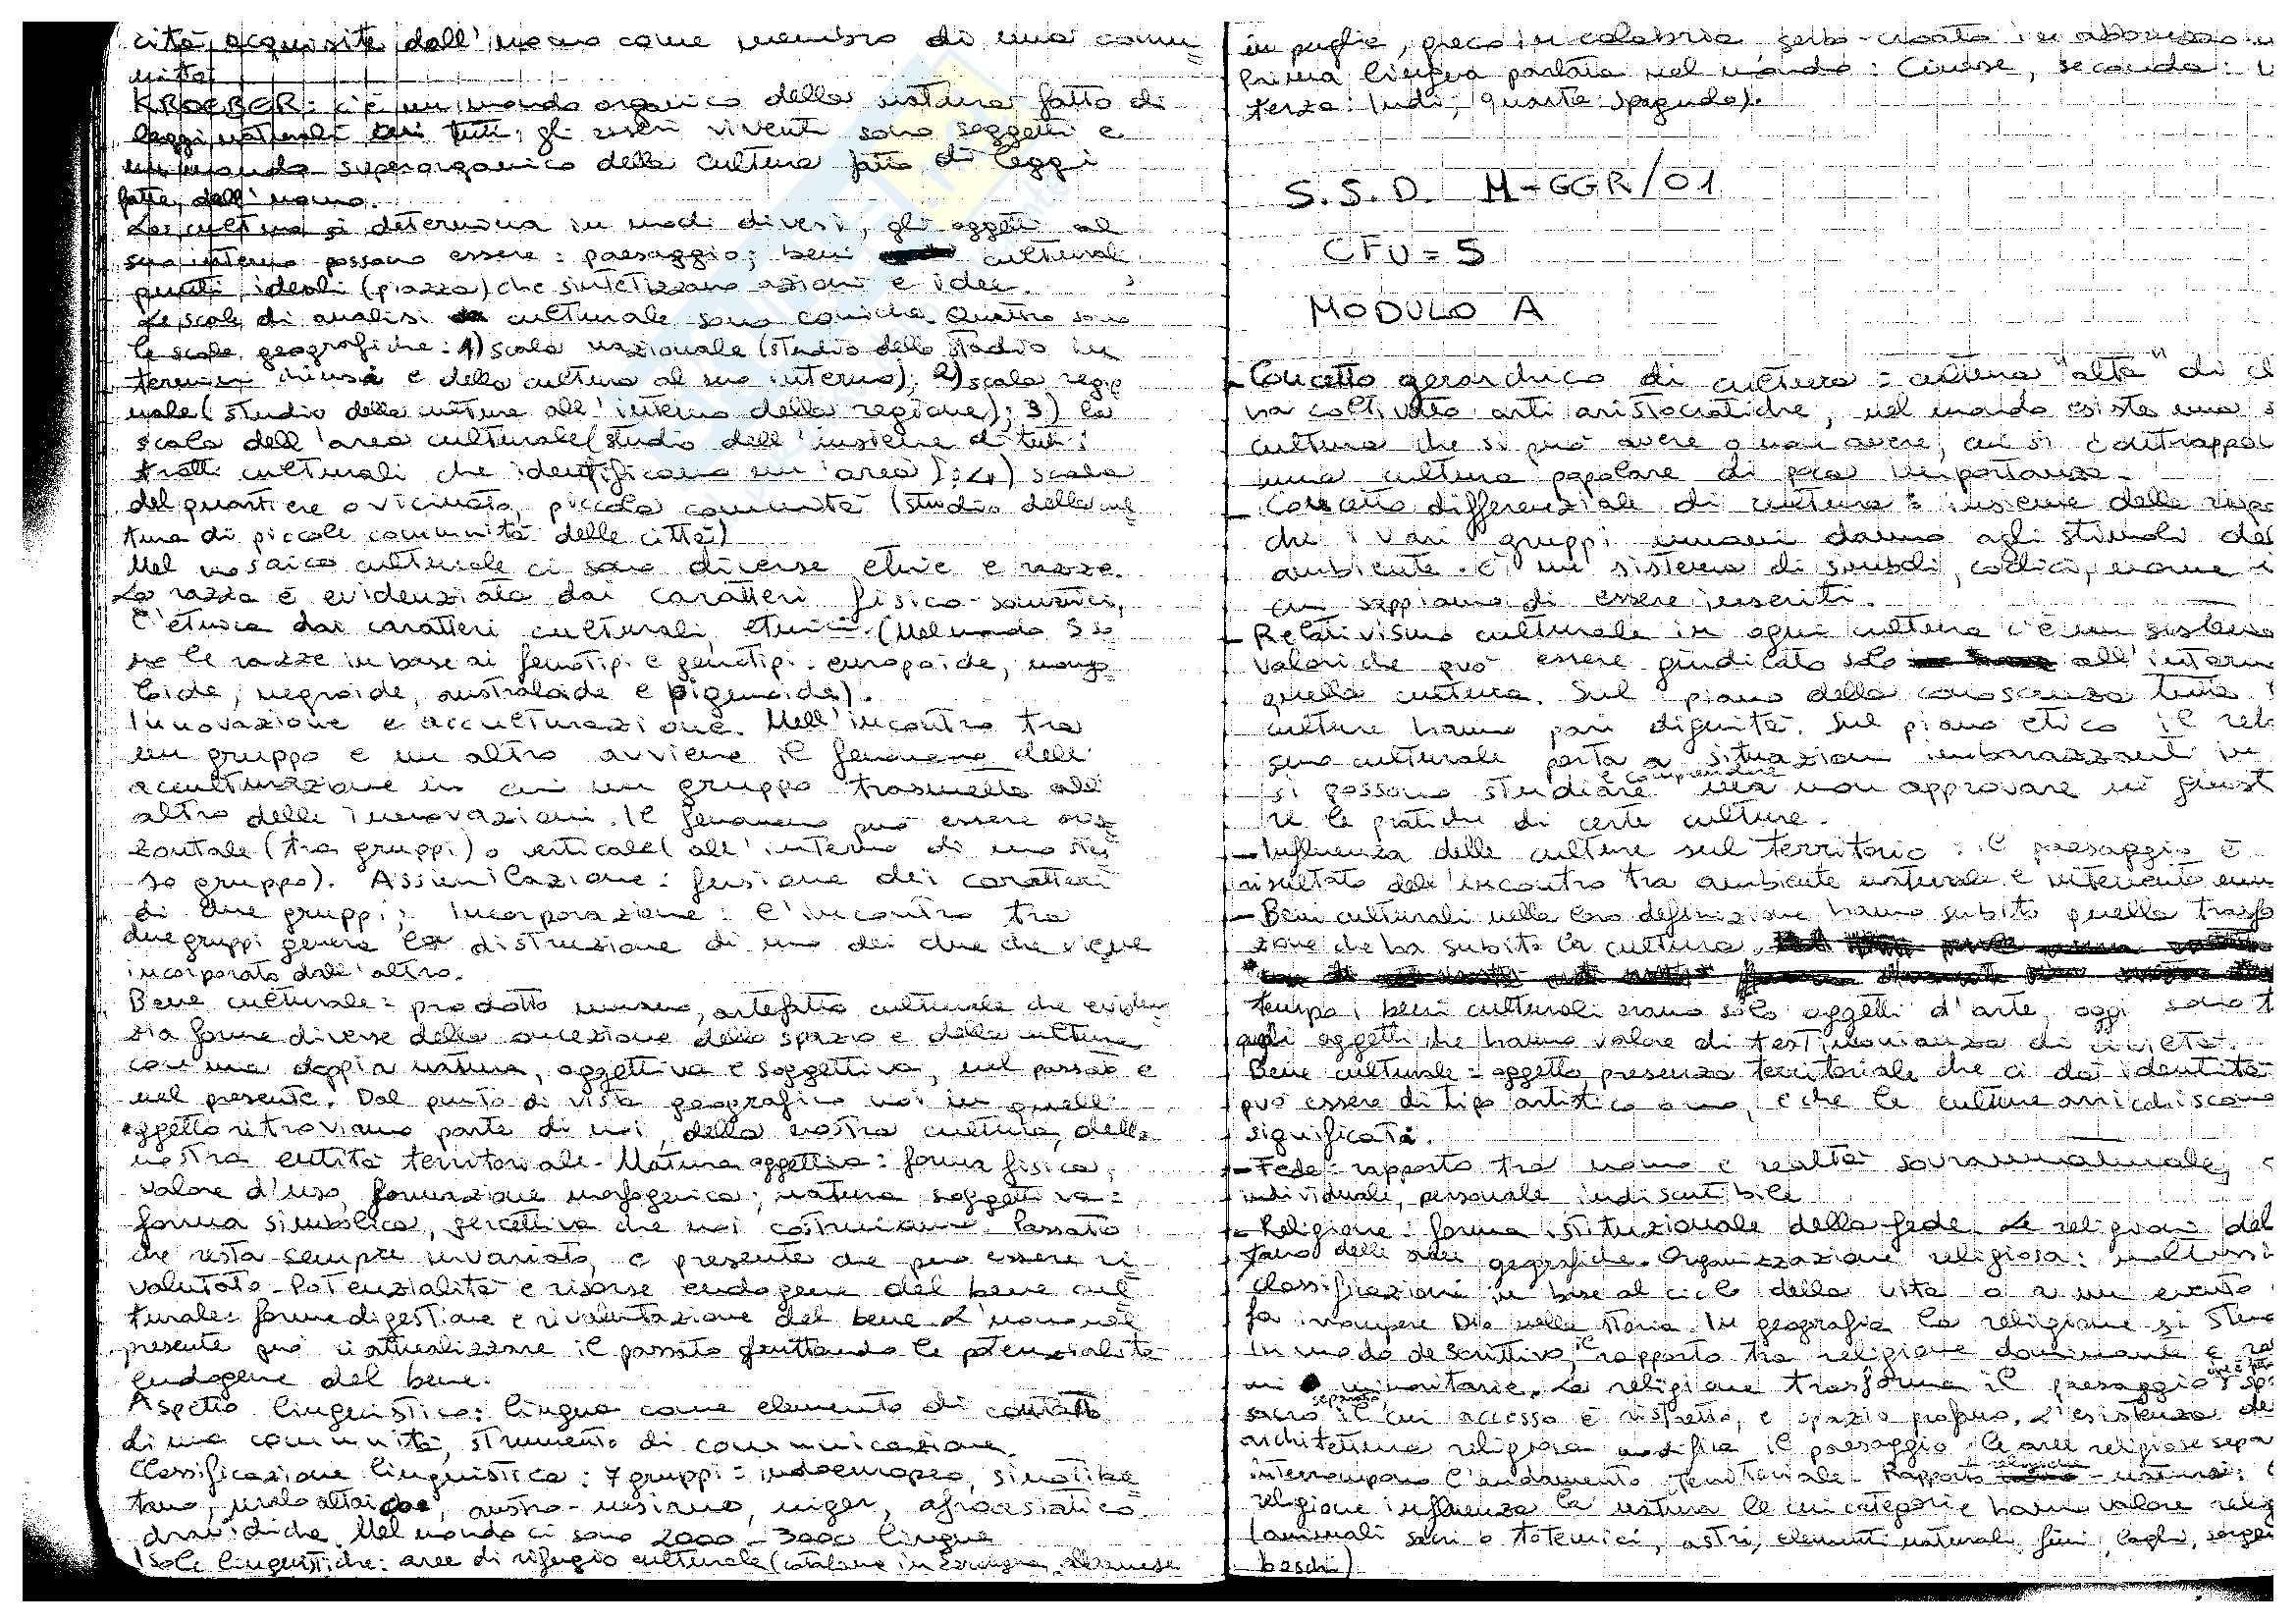 cità acquisite dall'uomo come membro di una comu
nità.
KROEBER: c'è un mondo organico della natura fatto di
leggi naturali cui tutti gli esseri viventi sono soggetti e
un mondo superorganico della cultura fatto di leggi
fatte dall'uomo.
La cultura si determina in modi diversi, gli oggetti al
suo interno possono essere: paesaggio; beni culturali,
punti ideali (piazza) che sintetizzano azioni e idee.
Le scale di analisi culturale sono coniche. Quattro sono
le scale geografiche: 1) scala nazionale (studio dello stadio in
termini chiusi e della cultura al suo interno); 2) scala regio
nale (studio della cultura all'interno della regione); 3) la
scala dell'area culturale (studio dell'insieme di tutti i
tratti culturali che identificano un'area); 4) scala
del quartiere o vicinato, piccola comunità (studio della cul
tura di piccole comunità delle città)
Nel mosaico culturale ci sono diverse etnie e razze.
La razza è evidenziata dai caratteri fisico-somatici,
l'etnia dai caratteri culturali, etnici. (Nel mondo 5 so
no le razze in base ai fenotipi e genotipi: europoide, mongo
loide, negroide, australoide e pigmoide).
Innovazione e acculturazione. Nell'incontro tra
un gruppo e un altro avviene il fenomeno dell'
acculturazione in cui un gruppo trasmette all'
altro delle innovazioni. Il fenomeno può essere oriz
zontale (tra gruppi) o verticale (all'interno di uno stes
so gruppo). Assimilazione: fusione dei caratteri
di due gruppi; incorporazione: l'incontro tra
due gruppi genera la distruzione di uno dei due che viene
incorporato dall'altro.
Bene culturale = prodotto umano, artefatto culturale che eviden
zia forme diverse della concezione dello spazio e della cultura
con una doppia natura, oggettiva e soggettiva, nel passato e
nel presente. Dal punto di vista geografico noi in quell'
oggetto ritroviamo parte di noi, della nostra cultura, della
nostra entità territoriale. Natura oggettiva: forma fisica,
valore d'uso, formazione morfogenica; natura soggettiva:
forma simbolica, percettiva che noi costruiamo. Passato
che resta sempre invariato, e presente che può essere ri
valutato. Potenzialità e risorse endogene del bene cul
turale: forme di gestione e rivalutazione del bene. L'uomo nel
presente può riattualizzare il passato sfruttando le potenzialità
endogene del bene.
Aspetto linguistico: lingua come elemento di contatto
di una comunità, strumento di comunicazione.
Classificazione linguistica: 7 gruppi = indoeuropeo, sinotibe
tano, uralo altaico, austro-nesiano, niger, afroasiatico,
dravidiche. Nel mondo ci sono 2000 - 3000 lingue
Isole linguistiche: aree di rifugio culturale (catalano in Sardegna, albanese
in puglia, greco in calabria serbo-croato in abbruzzo
Prima lingua parlata nel mondo: Cinese, seconda:
terza: Indi, quarta: spagnolo).
S.S.D. M-GGR/01
CFU = 5
MODULO A
- Concetto gerarchico di cultura = cultura "alta" di
ha coltivato arti aristocratiche, nel mondo esiste una
cultura che si può avere o non avere, cui si contrappo
una cultura popolare di poca importanza.
- Concetto differenziale di cultura = insieme delle rispo
che i vari gruppi umani danno agli stimoli del
ambiente. C'è un sistema di simboli, codici, norme
cui sappiamo di essere inseriti.
- Relativismo culturale in ogni cultura c'è un sistema
valori che può essere giudicato solo all'intern
quella cultura. Sul piano della conoscenza tutte
culture hanno pari dignità. Sul piano etico il rela
smo culturale porta a situazioni imbarazzanti in
si possono studiare e comprendere ma non approvare ni giust
re le pratiche di certe culture.
- Influenza delle culture sul territorio: il paesaggio è
risultato dell'incontro tra ambiente naturale e intervento um
- Beni culturali nella loro definizione hanno subito quella trasfo
zione che ha subito la cultura.
tempo i beni culturali erano solo oggetti d'arte, oggi sono
quegli oggetti che hanno valore di testimonianza di civiltà.
Bene culturale = oggetto, presenza territoriale che ci dà identità
può essere di tipo artistico o no, e che le culture arricchiscono
significati.
- Fede: rapporto tra uomo e realtà sovrannaturale,
individuale, personale indiscutibile
- Religione: forma istituzionale della fede. Le religioni del
tano delle aree geografiche. Organizzazione religiosa: moltissi
classificazioni in base al ciclo della vita o a un evento
fa irrompere Dio nella storia. In geografia la religione si stud
in modo descrittivo, il rapporto tra religione dominante e
minoritarie. La religione trasforma il paesaggio
sacro separato il cui accesso è ristretto, e spazio profano. L'esistenza de
architettura religiosa modifica il paesaggio, le aree religiose sepa
interrompono l'andamento territoriale. Rapporto religione - natura:
religione influenza la natura le cui categorie hanno valore relig
(animali sacri o totemici, astri, elementi naturali, fiumi, laghi, sorgen
boschi)